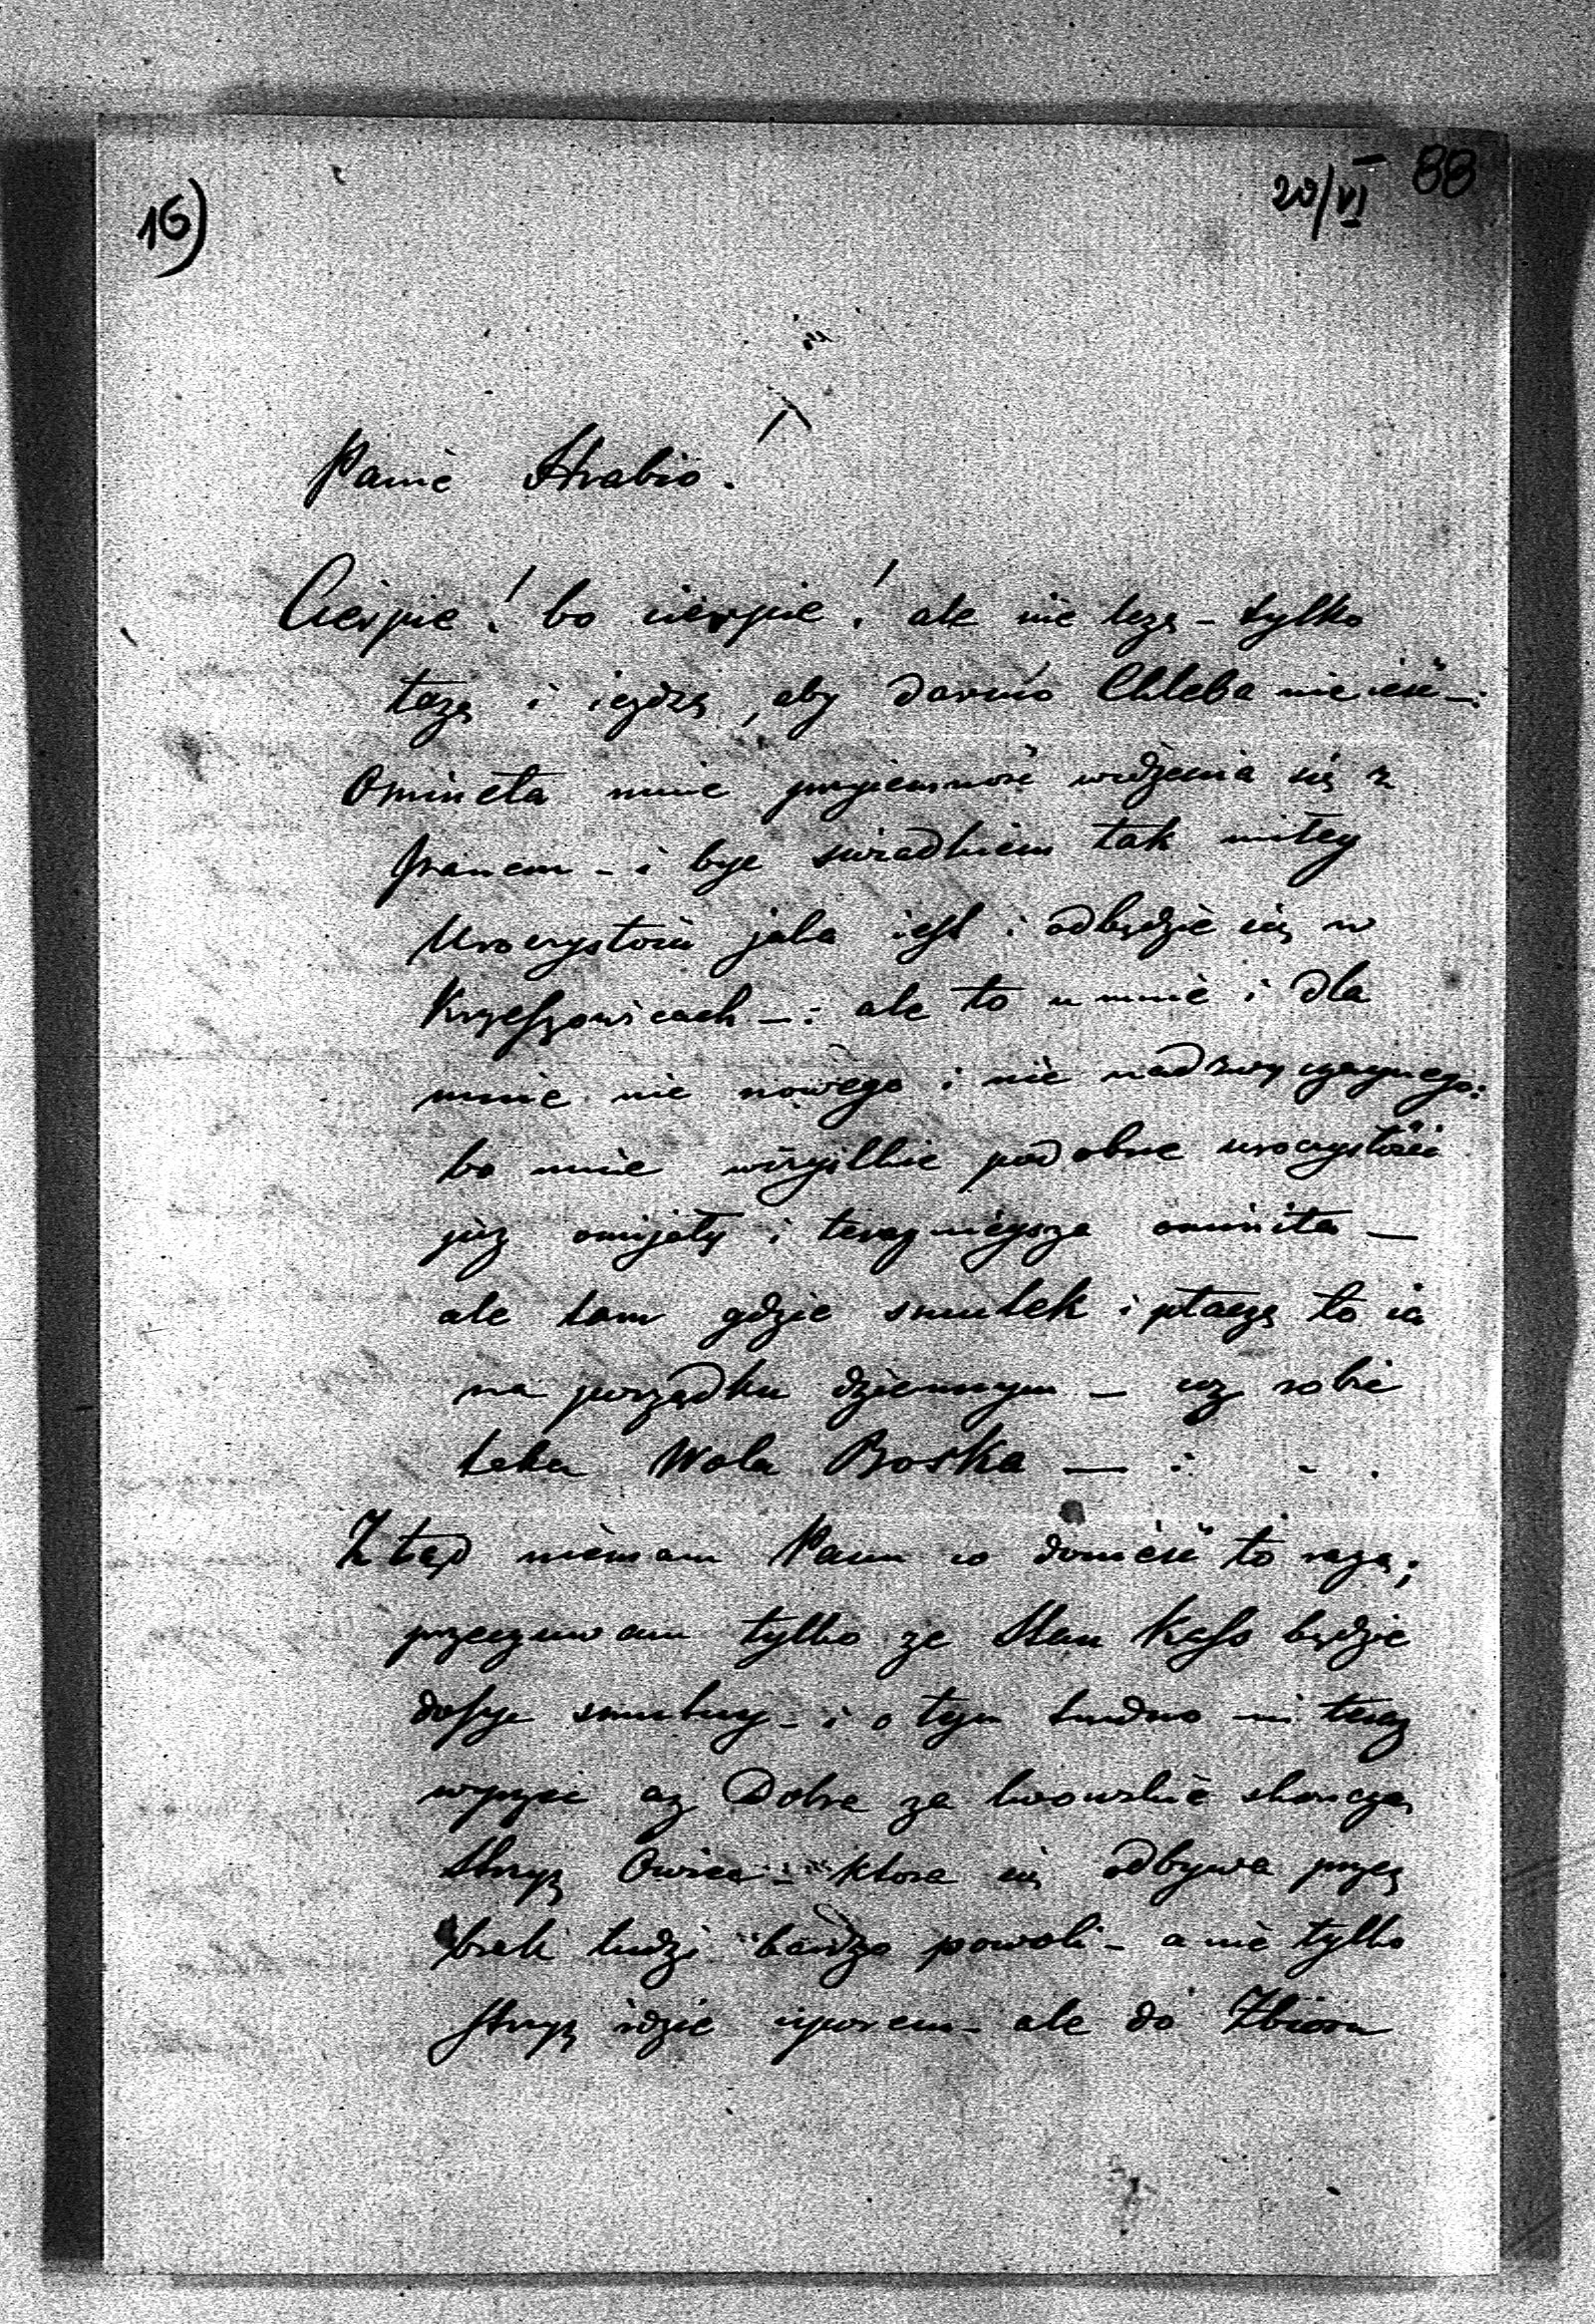 16)
20/VI 88
Panie Hrabio.
Cierpie! bo cierpie! ale nie lezę – tylko
łazę i iezdzę, aby darmo Chleba nie iesć –:
Omineła mnie przyiemność widzenia się z
Panem – i byc swiadkiem tak miłey
Uroczystosci jaka iest i odbędzie się w
Krzeszowicach –: ale to u mnie i dla
mnie nic nowego i nic nadzwyczaynego:
bo mnie wszystkie podobne uroczystości
juz omijały i terazniéysza omineła –
ale tam gdzie smutek i płaczą to ia
na porządku dziennym – cóz robic
taka Wola Boska – :
Z tąd niemam Panu co donieść to razą;
przeczuwam tylko ze Stan Kass będzie
dosyc smutny – i o tym trudno mi teraz
wyrzec az Dobra za lwowskie skonczą
Strzyz Owiec – ktora się odbywa przez
brak ludzi bardzo powoli – a nie tylko
Strzyz idzie oporem – ale do Zbioru